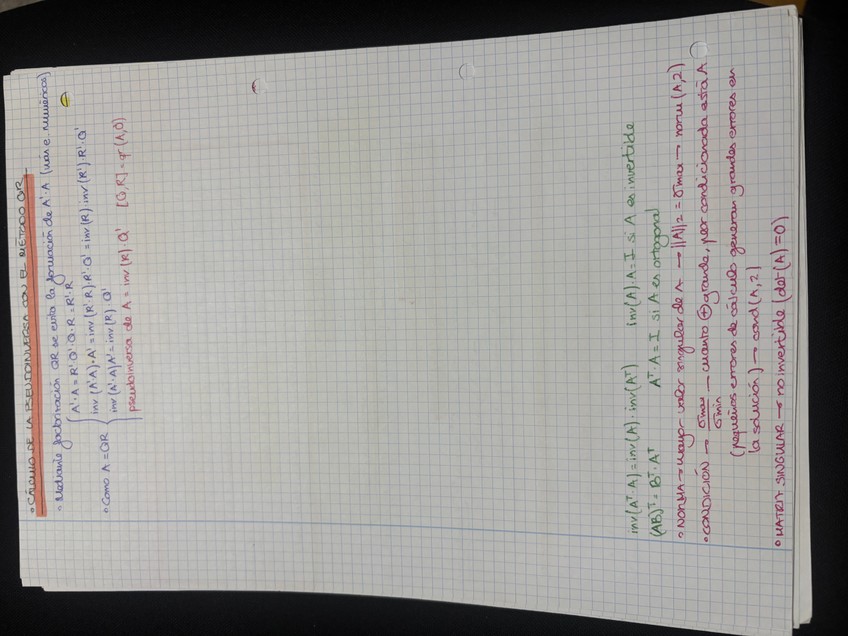 • CÁLCULO DE LA PSEUDOINVERSA CON EL MÉTODO QR
• Mediante factorización QR se evita la formación de A'·A (más e. numéricos)
A'·A = R'·Q'·Q·R = R'·R
inv(A'·A)·A' = inv(R'·R)·R'·Q' = inv(R)·inv(R')·R'·Q'
• Como A = QR
inv(A'·A)A' = inv(R)·Q'
pseudoinversa de A = inv(R)·Q' [Q,R] = qr(A,0)
inv(Aᵀ·A) = inv(A)·inv(Aᵀ) inv(A)·A = I si A es invertible
(AB)ᵀ = Bᵀ·Aᵀ Aᵀ·A = I si A es ortogonal
• NORMA → mayor valor singular de A → ||A||₂ = σmax → norm(A,2)
• CONDICIÓN → σmax/σmin → cuanto ⊕ grande, peor condicionada está A
(pequeños errores de cálculo generan grandes errores en
la solución) → cond(A,2)
• MATRIZ SINGULAR → no invertible (det(A)=0)